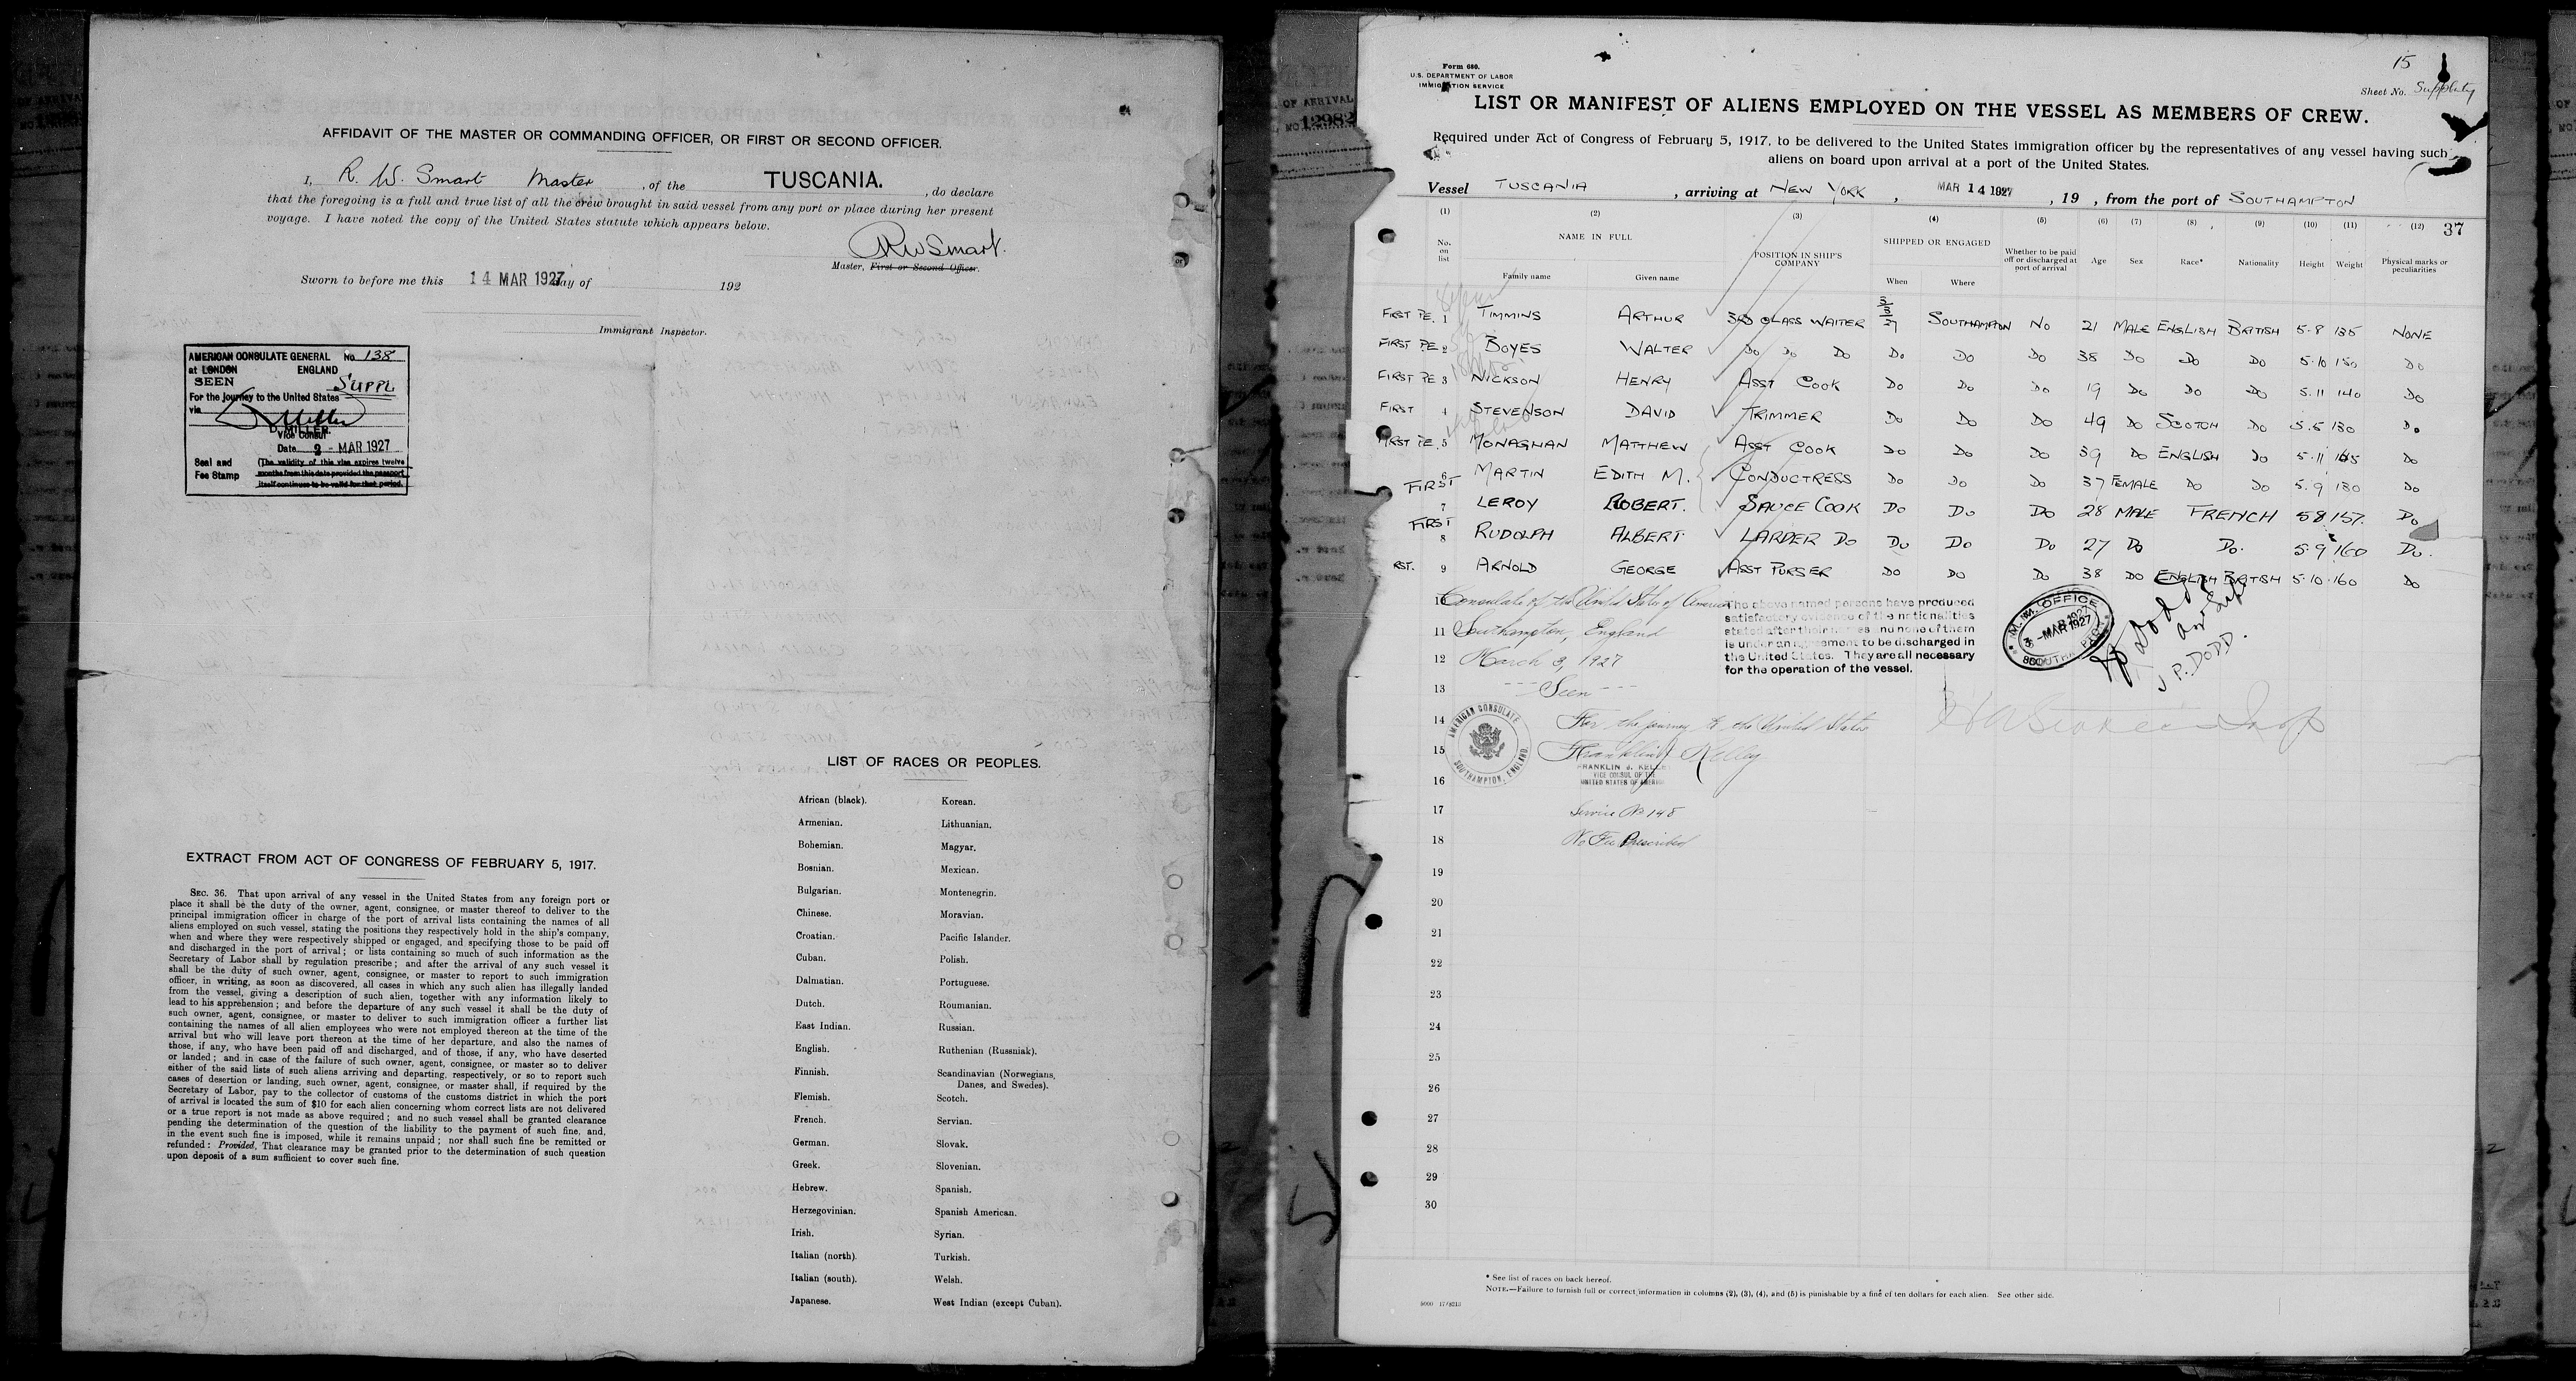 AFFIDAVIT OF THE MASTER OR COMMANDING OFFICER, OR FIRST OR SECOND OFFICER.
I, R. W. Smart Master, of the TUSCANIA., do declare
that the foregoing is a full and true list of all the crew brought in said vessel from any port or place during her present
voyage. I have noted the copy of the United States statute which appears below.
RWSmart.
Master, First or Second Officer.
Sworn to before me this 14 MAR 1927 day of 192
Immigrant Inspector.
AMERICAN CONSULATE GENERAL No. 138
at LONDON ENGLAND
SEEN SUPPL
For the journey to the United States
via
D Miller
D. MILLER.
Vice Consul
Date 2 - MAR 1927
Seal and (The validity of this visa expires twelve
Fee Stamp months from this date provided the passport
itself continues to be valid for that period.
LIST OF RACES OR PEOPLES.
African (black). Korean.
Armenian. Lithuanian.
Bohemian. Magyar.
Bosnian. Mexican.
Bulgarian. Montenegrin.
Chinese. Moravian.
Croatian. Pacific Islander.
Cuban. Polish.
Dalmatian. Portuguese.
Dutch. Roumanian.
East Indian. Russian.
English. Ruthenian (Russniak).
Finnish. Scandinavian (Norwegians,
Danes, and Swedes).
Flemish. Scotch.
French. Servian.
German. Slovak.
Greek. Slovenian.
Hebrew. Spanish.
Herzegovinian. Spanish American.
Irish. Syrian.
Italian (north). Turkish.
Italian (south). Welsh.
Japanese. West Indian (except Cuban).
EXTRACT FROM ACT OF CONGRESS OF FEBRUARY 5, 1917.
SEC. 36. That upon arrival of any vessel in the United States from any foreign port or
place it shall be the duty of the owner, agent, consignee, or master thereof to deliver to the
principal immigration officer in charge of the port of arrival lists containing the names of all
aliens employed on such vessel, stating the positions they respectively hold in the ship's company,
when and where they were respectively shipped or engaged, and specifying those to be paid off
and discharged in the port of arrival; or lists containing so much of such information as the
Secretary of Labor shall by regulation prescribe; and after the arrival of any such vessel it
shall be the duty of such owner, agent, consignee, or master to report to such immigration
officer, in writing, as soon as discovered, all cases in which any such alien has illegally landed
from the vessel, giving a description of such alien, together with any information likely to
lead to his apprehension; and before the departure of any such vessel it shall be the duty of
such owner, agent, consignee, or master to deliver to such immigration officer a further list
containing the names of all alien employees who were not employed thereon at the time of the
arrival but who will leave port thereon at the time of her departure, and also the names of
those, if any, who have been paid off and discharged, and of those, if any, who have deserted
or landed; and in case of the failure of such owner, agent, consignee, or master so to deliver
either of the said lists of such aliens arriving and departing, respectively, or so to report such
cases of desertion or landing, such owner, agent, consignee, or master shall, if required by the
Secretary of Labor, pay to the collector of customs of the customs district in which the port
of arrival is located the sum of $10 for each alien concerning whom correct lists are not delivered
or a true report is not made as above required; and no such vessel shall be granted clearance
pending the determination of the question of the liability to the payment of such fine, and,
in the event such fine is imposed, while it remains unpaid; nor shall such fine be remitted or
refunded: Provided, That clearance may be granted prior to the determination of such question
upon deposit of a sum sufficient to cover such fine.
OF ARRIVAL
12982
Form 680.
U.S. DEPARTMENT OF LABOR
IMMIGRATION SERVICE
15
Sheet No.
LIST OR MANIFEST OF ALIENS EMPLOYED ON THE VESSEL AS MEMBERS OF CREW.
Required under Act of Congress of February 5, 1917, to be delivered to the United States immigration officer by the representatives of any vessel having such
aliens on board upon arrival at a port of the United States.
Vessel TUSCANIA, arriving at NEW YORK, MAR 14 1927, 19 , from the port of SOUTHAMPTON
(1) (2) (3) (4) (5) (6) (7) (8) (9) (10) (11) (12) 37
No. on list NAME IN FULL Family name Given name POSITION IN SHIP'S COMPANY SHIPPED OR ENGAGED When Where Whether to be paid off or discharged at port of arrival Age Sex Race* Nationality Height Weight Physical marks or peculiarities
FIRST PE. 1 TIMMINS ARTHUR 3RD CLASS WAITER 3/3/27 SOUTHAMPTON NO 21 MALE ENGLISH BRITISH 5.8 135 NONE
FIRST PE 2 BOYES WALTER DO DO DO DO DO DO 38 DO DO DO 5.10 150 DO
FIRST PE 3 NICKSON HENRY ASST COOK DO DO DO 19 DO DO DO 5.11 140 DO
FIRST 4 STEVENSON DAVID TRIMMER DO DO DO 49 DO SCOTCH DO 5.5 130 DO
FIRST PE. 5 MONAGHAN MATTHEW ASST COOK DO DO DO 39 DO ENGLISH DO 5.11 165 DO
FIRST 6 MARTIN EDITH M. CONDUCTRESS DO DO DO 37 FEMALE DO DO 5.9 130 DO
7 LEROY ROBERT. SAUCE COOK DO DO DO 28 MALE FRENCH 58 157. DO
FIRST 8 RUDOLPH ALBERT. LARDER DO DO DO DO 27 DO DO. 5.9 160 DO.
RST. 9 ARNOLD GEORGE ASST PURSER DO DO DO 38 DO ENGLISH BRITISH 5.10 160 DO
10 Consulate of the United States of America
11 Southampton, England
12 March 3, 1927
13 --- Seen ---
14 For the journey to the United States
15 Franklin B Kelley
FRANKLIN B. KELLEY
VICE CONSUL OF THE
16 UNITED STATES OF AMERICA
17 Service No 148
18 No Fee Prescribed
AMERICAN CONSULATE
SOUTHAMPTON, ENGLAND.
The above named persons have produced
satisfactory evidence of the nationalities
stated after their names and none of them
is under an agreement to be discharged in
the United States. They are all necessary
for the operation of the vessel.
M.M. OFFICE
3 - MAR 1927
J P. DODD.
19
20
21
22
23
24
25
26
27
28
29
30
* See list of races on back hereof.
NOTE.—Failure to furnish full or correct information in columns (2), (3), (4), and (5) is punishable by a fine of ten dollars for each alien. See other side.